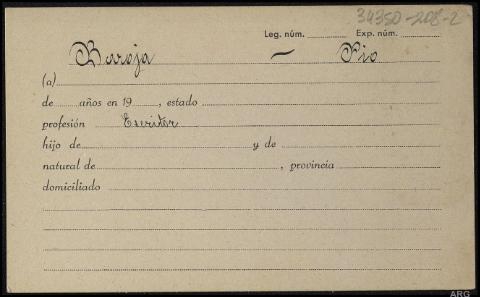 34350-208-2
Leg. núm. Exp. núm.
Baroja — Pio
(a)
de años en 19 , estado
profesión Escritor
hijo de y de
natural de , provincia
domiciliado
ARG